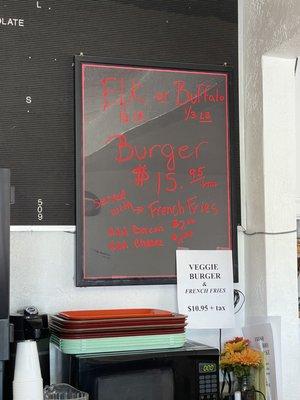 OLATE
L
S
509
Elk or Buffalo
1/3 LB 1/3 LB
Burger
$15.95
served with → French Fries
Add Bacon
Add Cheese
VEGGIE
BURGER
&
FRENCH FRIES
$10.95 + tax